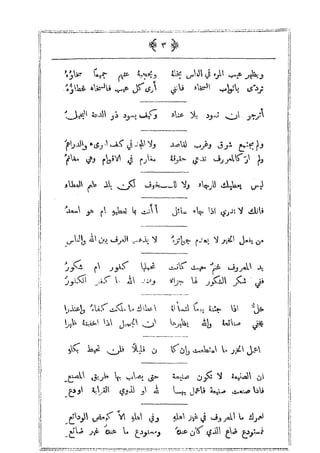 ﴿ ٣ ﴾
ويظهر عيب المرء في الناس بخله ويحجبه عنهم جميعًا سخاؤهُ
تردى باثواب السخاء فانني أرى كل عيب فالسخاء غطاؤهُ
أترجو ان تسود بلا عناء وكيف يسود ذو الدعة البخيلُ
ولم يجتمع شرق وغرب لقاصد ولا المجد في كف امرىء والدراهمُ
ولم ار كالمعروف تدعى حقوقه مغارم في الاقوام وهي مغانمُ
ليس يعطيك للرجاء ولا للخوف لكن يلذ طعم العطاء
فانك لا تدري اذا جاء سائل أأنت بما تعطيهِ ام هو اسعدُ
من يفعل الخير لا يعدم جوائزهُ لا يذهب العرف بين الله والناسِ
يد المعروف غنم حيث كانت تحملها كفور ام شكورُ
ففي شكر الشكور لها جزاء وعند الله ما كفر الكفورُ
خلٌّ اذا جئته يومًا لتسأله اعطاك ما ملكت كفاه واعتذرا
يخفي صنائعه والله يظهرها ان الجميل اذا اخفيته ظهرا
اعمل الخير ما استطعت وان كان قليلاً فلن تحيط بكلهِ
ان الصنيعة لا تكون صنيعة حتى يصاب بها طريق المصنع
فاذا صنعت صنيعة فاعمل بها لله او لذوي القرابة او دع
لعمرك ما المعروف في غير اهلهِ وفي اهلهِ الاَّ كبعض الودائع
فمستودع ضاع الذي كان عندهُ ومستودع ما عندهُ غير ضائع